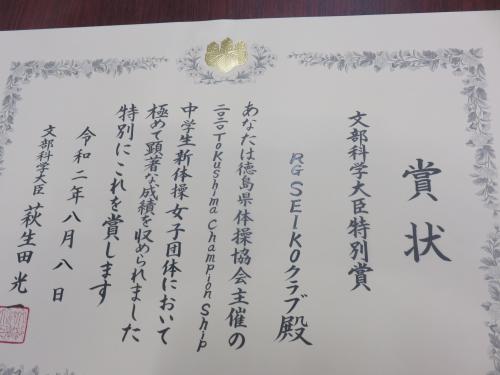 賞状
文部科学大臣特別賞
RG SEIKOクラブ殿
あなたは徳島県体操協会主催の
二〇二〇Tokushima Championship
中学生新体操女子団体において
極めて顕著な成績を収められました
特別にこれを賞します
令和二年八月八日
文部科学大臣 萩生田光一